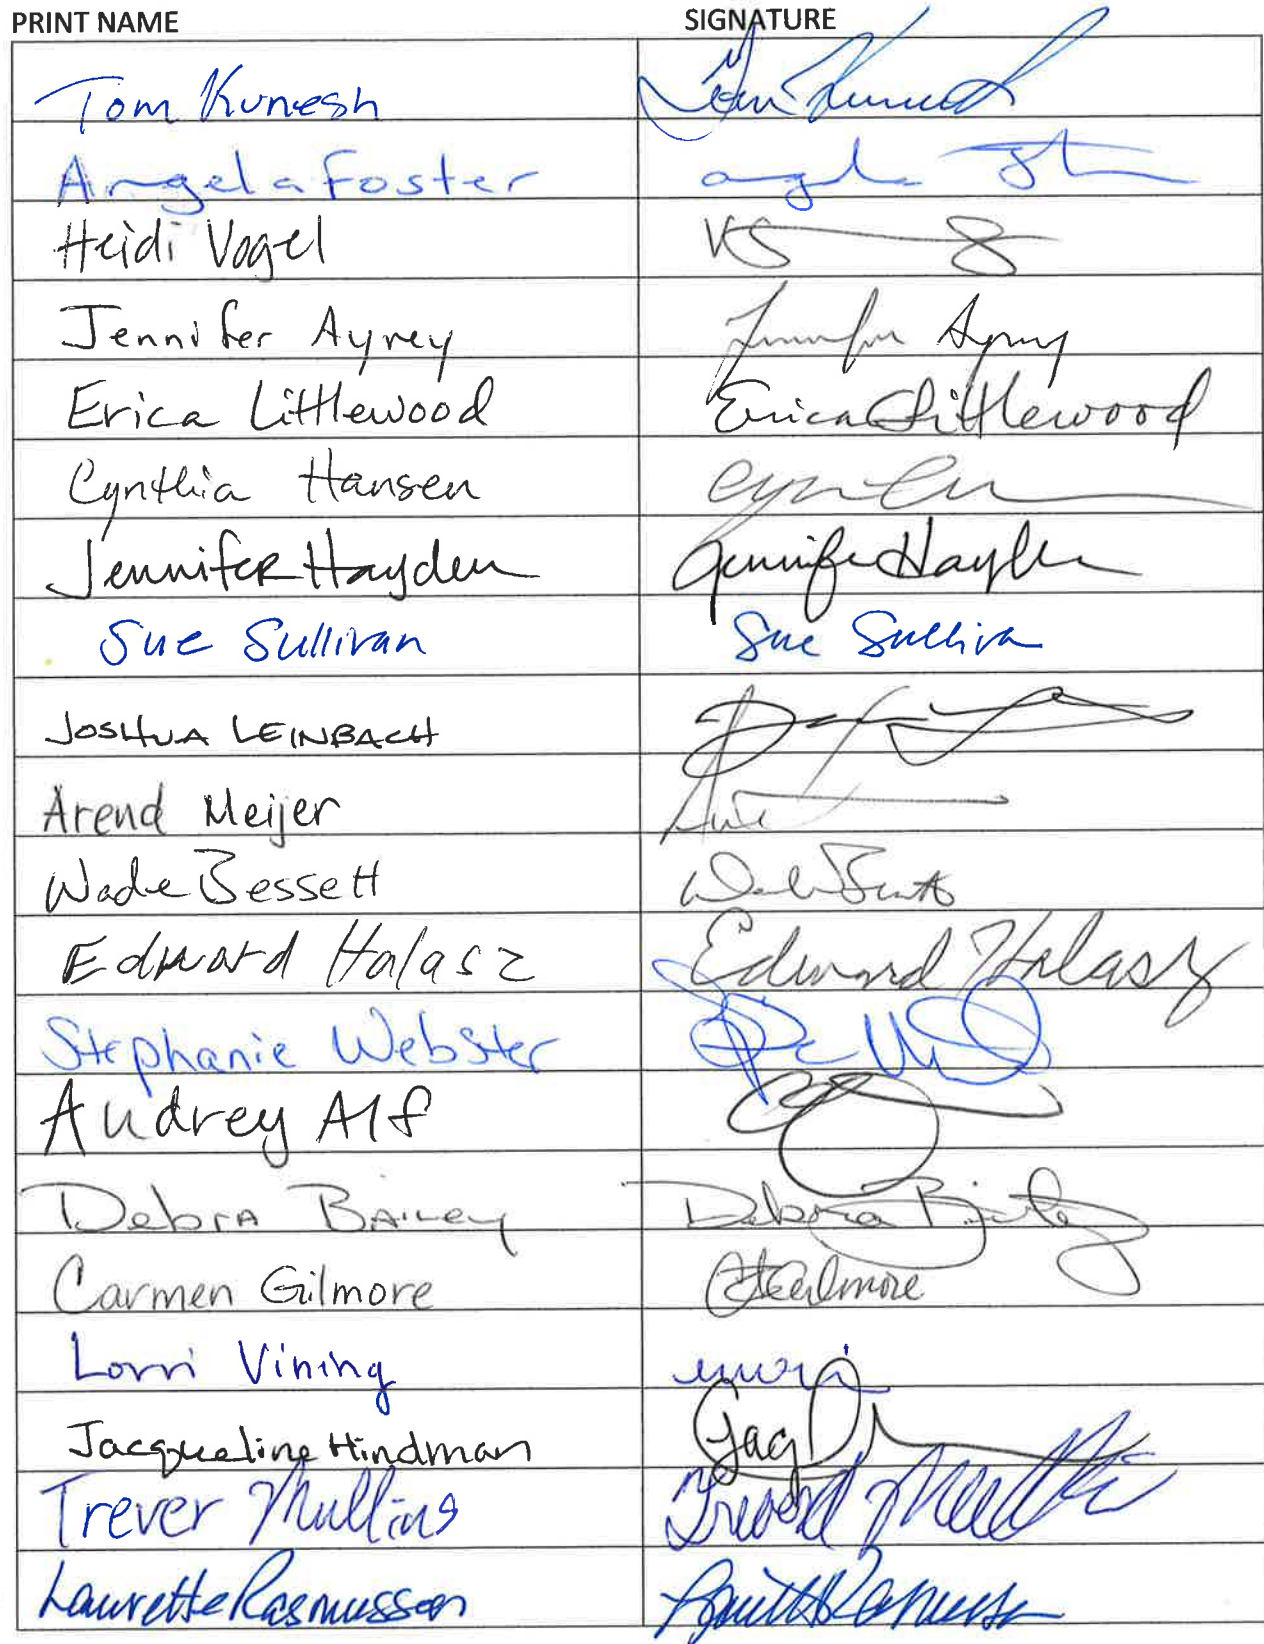 PRINT NAME SIGNATURE
Tom Kunesh Tom Kunesh
Angela Foster Angela
Heidi Vogel
Jennifer Ayrey Jennifer Ayrey
Erica Littlewood Erica Littlewood
Cynthia Hansen
Jennifer Hayden Jennifer Hayden
Sue Sullivan Sue Sullivan
JOSHUA LEINBACH
Arend Meijer
Wade Bessett
Edward Halasz Edward Halasz
Stephanie Webster
Audrey Alf
Debra Bailey Debora Bailey
Carmen Gilmore Gilmore
Lorri Vining
Jacqueline Hindman Jacq
Trever Mullins
Laurette Rasmusson